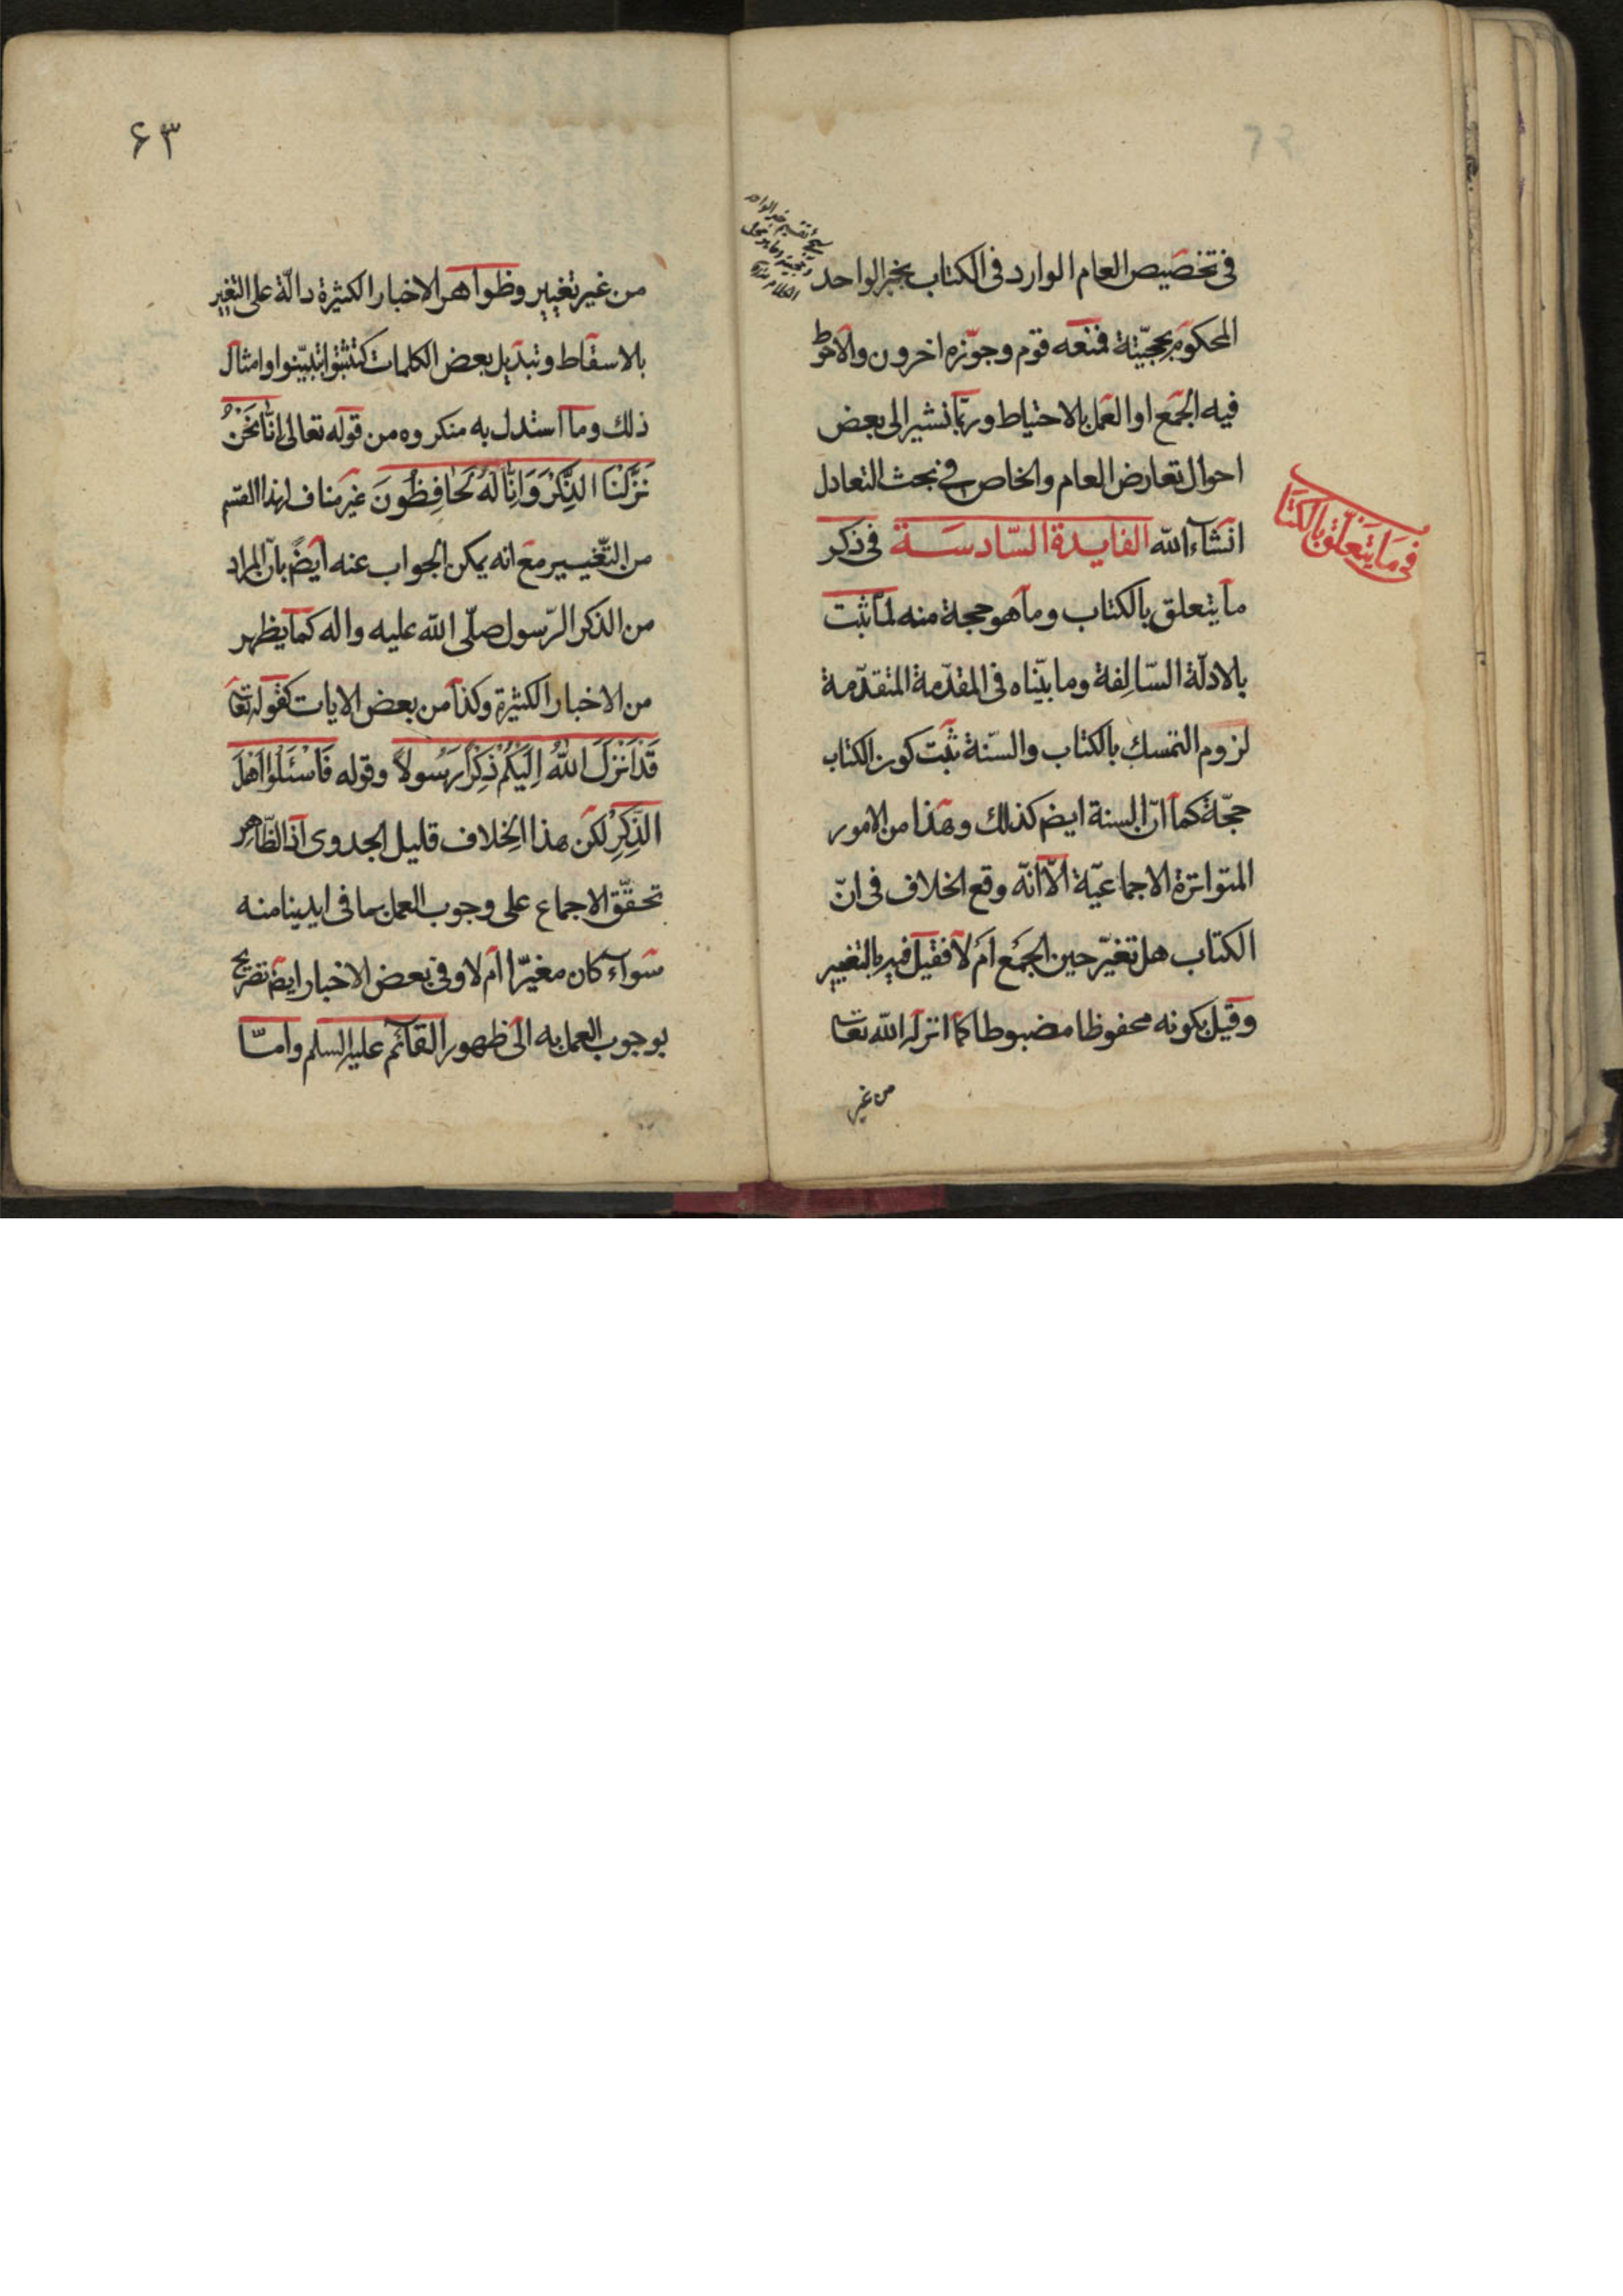 في تخصيص العام الوارد في الكتاب بخبر الواحد
المحكوم بحجيّته فمنعه قوم وجوّزه اخرون والاحوط
فيه الجمع او العمل بالاحتياط وربّما نشير الى بعض
احوال تعارض العام والخاص في بحث التعادل
انشاء الله الفايدة السّادسة في ذكر
ما يتعلق بالكتاب وما هو حجة منه لما ثبت
بالادلّة السّالفة وما بيّناه في المقدّمة المتقدّمة
لزوم التمسك بالكتاب والسّنة ثبت كون الكتاب
حجّة كما انّ السنة ايضم كذلك وهذا من الامور
المتواترة الاجماعيّة الّا انّه وقع الخلاف في انّ
الكتاب هل تغيّر حين الجمع أم لا فقيل فيه بالتغيير
وقيل بكونه محفوظا مضبوطا كما انزله الله تعا
من غير
في ما يتعلّق بالكتا
۶۳
من غير تغيير وظواهر الاخبار الكثيرة دالّة على التغيير
بالاسقاط وتبديل بعض الكلمات كتثبتوا بتبيّنوا وامثال
ذلك وما استدل به منكروه من قوله تعالى إنّا نَحْنُ
نَزَّلْنَا الذِّكْرَ وَاِنَّا لَهُ لَحَافِظُونَ غير مناف لهذا القسم
من التّغيير مع انه يمكن الجواب عنه ايضً بانّ المراد
من الذكر الرّسول صلّى الله عليه واله كما يظهر
من الاخبار الكثيرة وكذا من بعض الايات كقوله تعا
قَدْ اَنْزَلَ اللهُ اِلَيْكُمْ ذِكْرًا رَسُولاً وقوله فَاسْئَلُوا اَهْلَ
الذِّكْرِ لكن هذا الخِلاف قليل الجدوى اذ الظّاهر
تحقّق الاجماع على وجوب العمل بما في ايدينا منه
سَواء كان مغيّرا ام لا وفي بعض الاخبار ايضم تصريح
بوجوب العمل به الى ظهور القائم عليه السلم وامّا